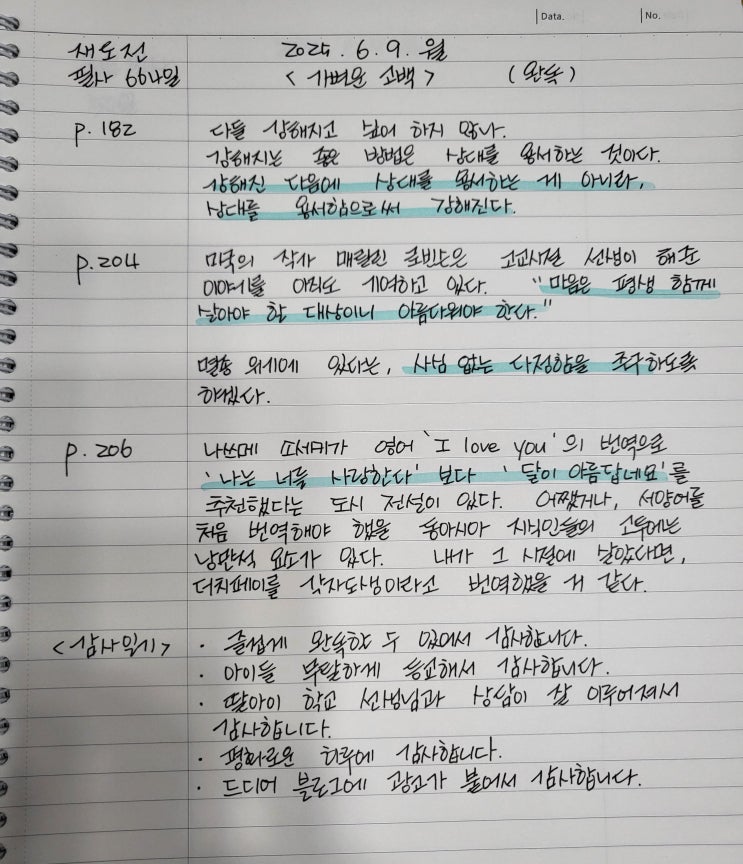 Data.
No.
새도전 2025. 6. 9. 월
필사 664일 <가벼운 고백> (완독)
p. 182 다들 강해지고 싶어 하지 않나.
강해지는 좋은 방법은 상대를 용서하는 것이다.
강해진 다음에 상대를 용서하는 게 아니라,
상대를 용서함으로써 강해진다.
p. 204 미국의 작가 매릴린 로빈슨은 고교시절 선생이 해준
이야기를 아직도 기억하고 있다. "마음은 평생 함께
살아야 할 대상이니 아름다워야 한다."
멸종 위기에 있다는, 사심 없는 다정함을 추구하도록
하겠다.
p. 206 나쓰메 소세키가 영어 'I love you'의 번역으로
'나는 너를 사랑한다' 보다 '달이 아름답네요'를
추천했다는 도시 전설이 있다. 어쨌거나, 서양어를
처음 번역해야 했을 동아시아 지식인들의 고투에는
낭만적 요소가 있다. 내가 그 시절에 살았다면,
더치페이를 각자도생이라고 번역했을 거 같다.
<감사일기> · 즐겁게 완독할 수 있어서 감사합니다.
· 아이들 무탈하게 등교해서 감사합니다.
· 딸아이 학교 선생님과 상담이 잘 이루어져서
감사합니다.
· 평화로운 하루에 감사합니다.
· 드디어 블로그에 광고가 붙어서 감사합니다.